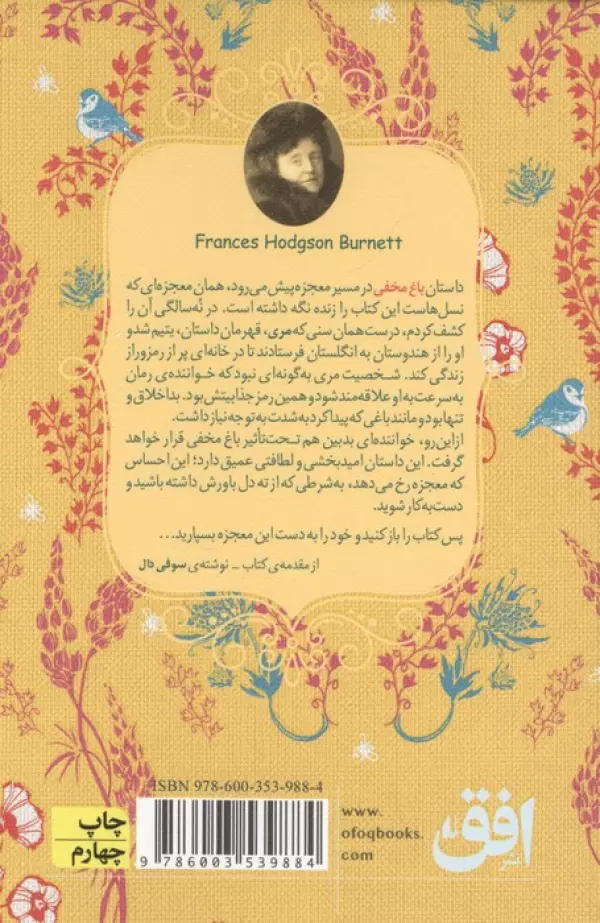 Frances Hodgson Burnett
داستان باغ مخفی در مسیر معجزه پیش می‌رود، همان معجزه‌ای که
نسل‌هاست این کتاب را زنده نگه داشته است. در نُه‌سالگی آن را
کشف کردم، درست همان سنی که مری، قهرمان داستان، یتیم شد و
او را از هندوستان به انگلستان فرستادند تا در خانه‌ای پر از رمزوراز
زندگی کند. شخصیت مری به‌گونه‌ای نبود که خواننده‌ی رمان
به‌سرعت به او علاقه‌مند شود و همین رمز جذابیتش بود. بداخلاق و
تنها بود و مانند باغی که پیدا کرد به‌شدت به توجه نیاز داشت.
ازاین‌رو، خواننده‌ای بدبین هم تحت‌تأثیر باغ مخفی قرار خواهد
گرفت. این داستان امیدبخشی و لطافتی عمیق دارد؛ این احساس
که معجزه رخ می‌دهد، به‌شرطی که از ته دل باورش داشته باشید و
دست‌به‌کار شوید.
پس کتاب را باز کنید و خود را به دست این معجزه بسپارید...
از مقدمه‌ی کتاب - نوشته‌ی سوفی دال
ISBN 978-600-353-988-4
9 786003 539884
www.
ofoqbooks.
com
نشر
افق
چاپ
چهارم